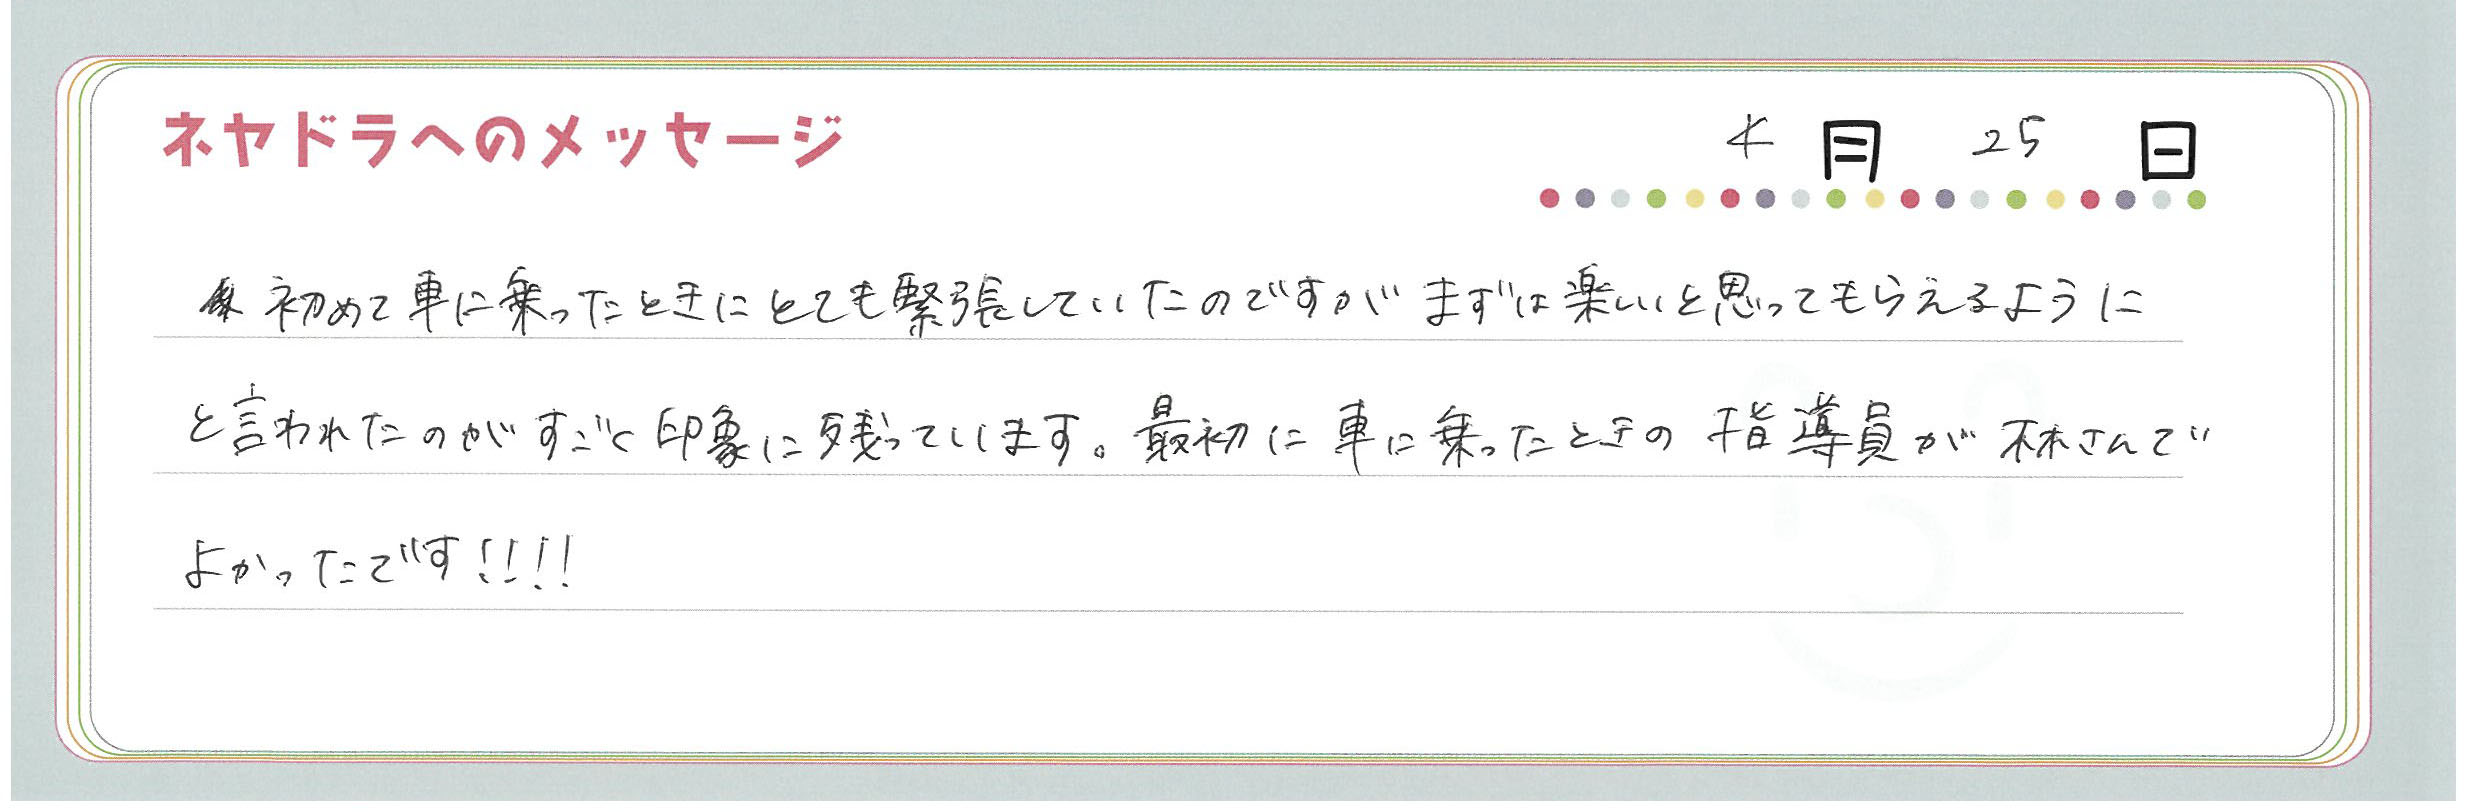 ネヤドラへのメッセージ
4月 25日
初めて車に乗ったときにとても緊張していたのですが まずは楽しいと思ってもらえるように
と言われたのがすごく印象に残っています。最初に車に乗ったときの 指導員が 林さんで
よかったです!!!!